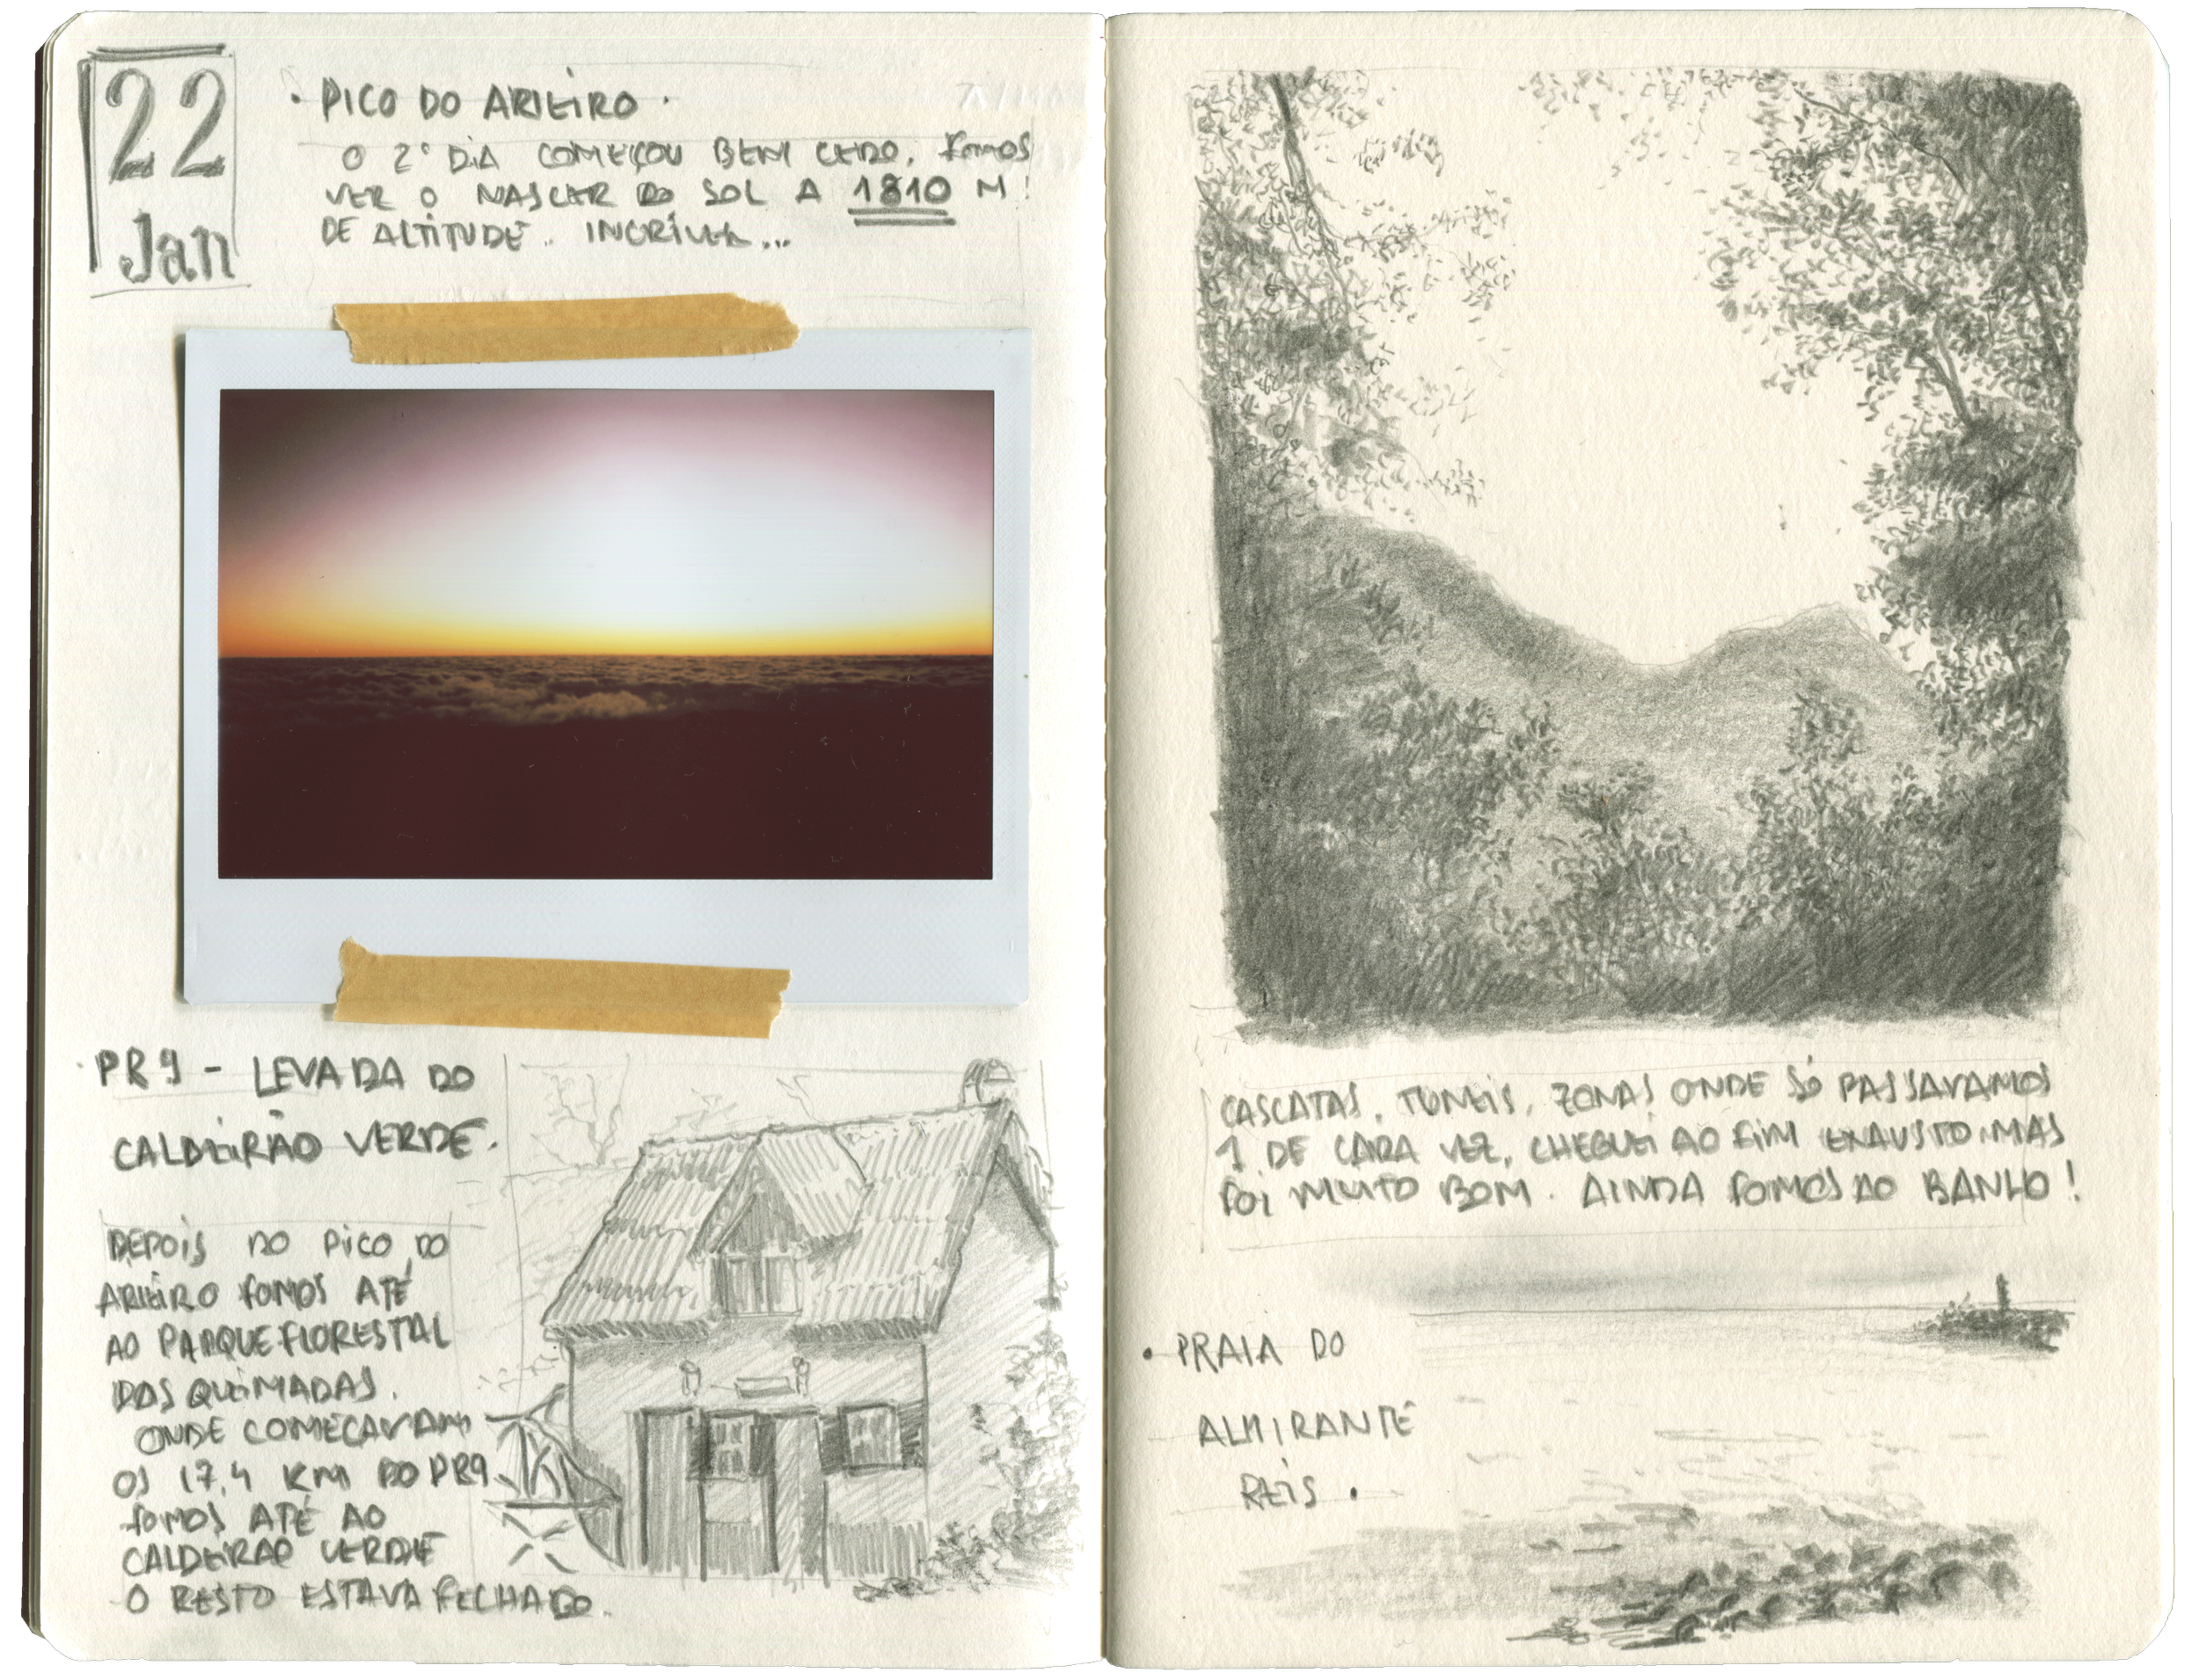 22
Jan
· PICO DO ARIEIRO ·
O 2º DIA COMEÇOU BEM CEDO, fomos
VER O NASCER DO SOL A 1810 M!
DE ALTITUDE.. INCRÍVEL...
· PR9 - LEVADA DO
CALDEIRÃO VERDE.
DEPOIS DO PICO DO
ARIEIRO fOMOS ATÉ
AO PARQUE FLORESTAL
DAS QUEIMADAS.
ONDE COMEÇAVAM
OS 17,4 KM DO PR9
fOMOS ATÉ AO
CALDEIRAO VERDE
O RESTO ESTAVA FECHADO.
CASCATAS, TUNEIS, ZONAS ONDE SÓ PASSAVAMOS
1 DE CADA VEZ, CHEGUEI AO FIM EXAUSTO. MAS
FOI MUITO BOM. AINDA FOMOS AO BANHO!
· PRAIA DO
ALMIRANTE
REIS.